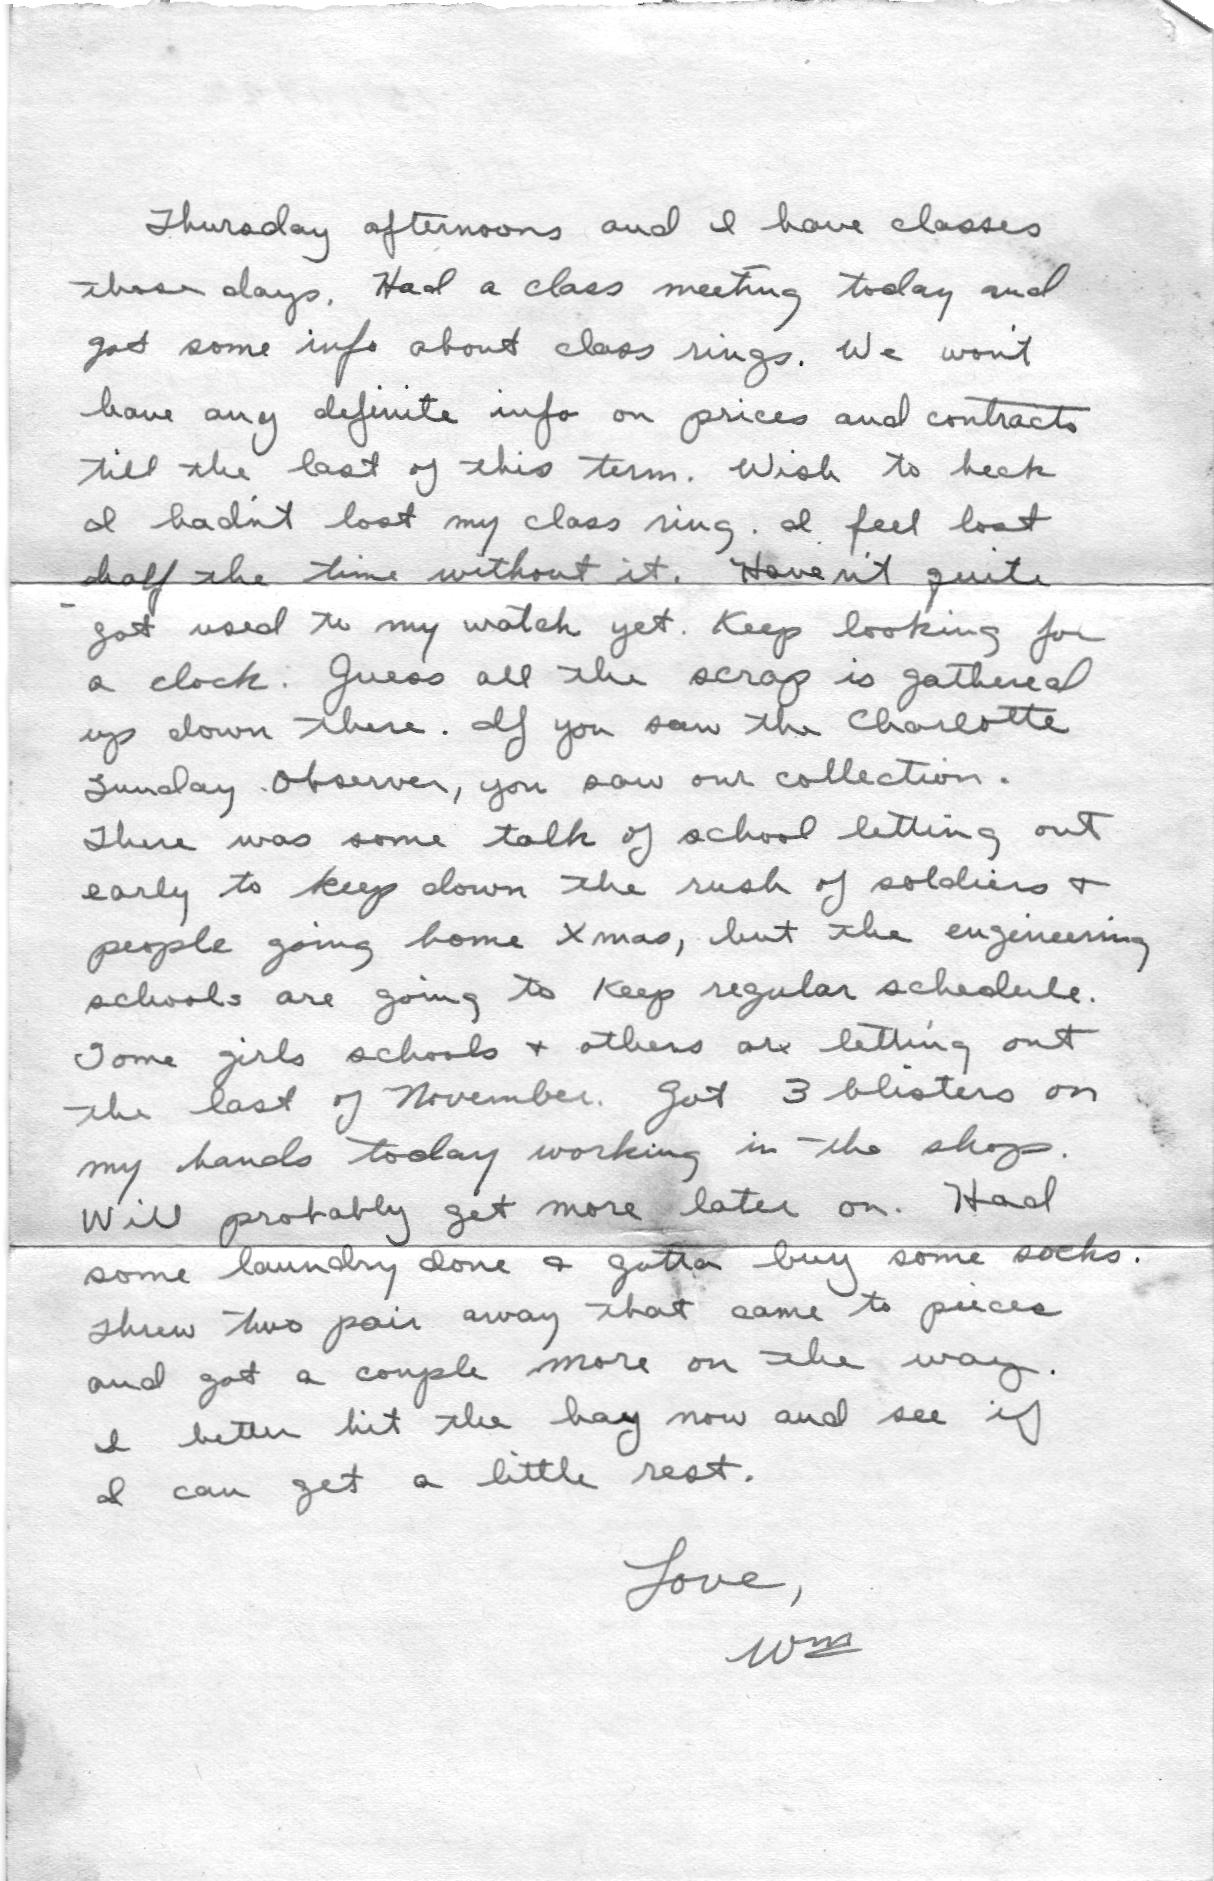 Thursday afternoons and I have classes
those days. Had a class meeting today and
got some info about class rings. We won't
have any definite info on prices and contracts
till the last of this term. Wish to heck
I hadn't lost my class ring. I feel lost
half the time without it. Haven't quite
got used to my watch yet. Keep looking for
a clock. Guess all the scrap is gathered
up down there. If you saw the Charlotte
Sunday Observer, you saw our collection.
There was some talk of school letting out
early to keep down the rush of soldiers &
people going home Xmas, but the engineering
schools are going to keep regular schedule.
Some girls schools & others are letting out
the last of November. Got 3 blisters on
my hands today working in the shop.
Will probably get more later on. Had
some laundry done & gotta buy some socks.
Threw two pair away that came to pieces
and got a couple more on the way.
I better hit the hay now and see if
I can get a little rest.
Love,
Wm